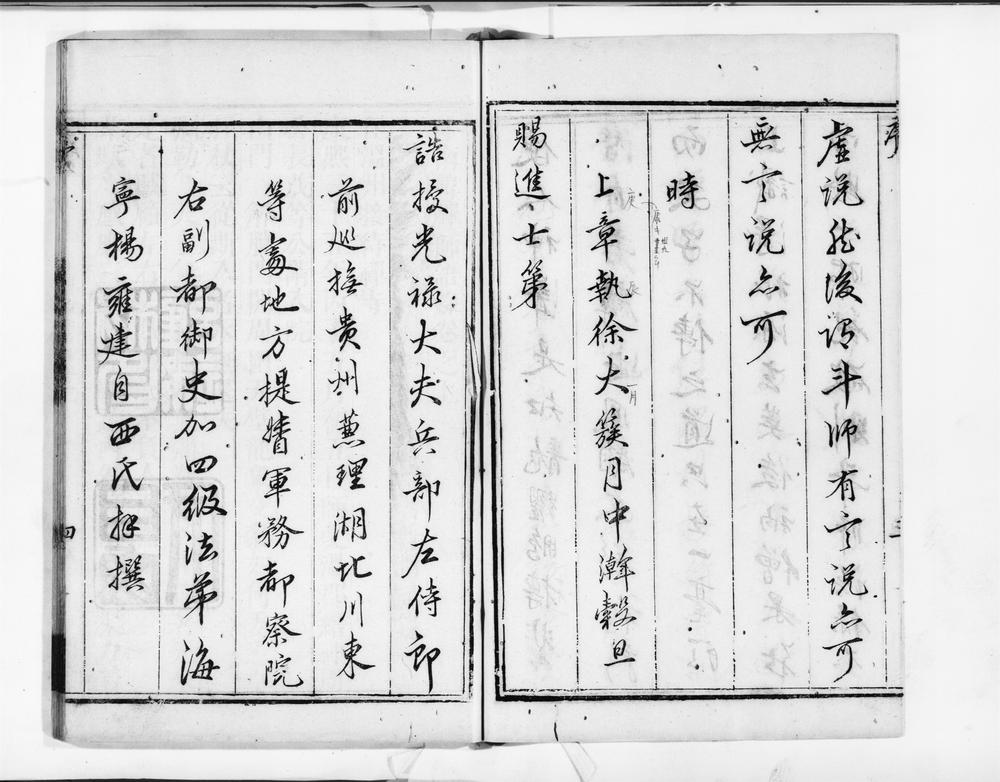 序
三
虛説然後謂斗師有言説亦可
無言説亦可
時
上章執徐大簇月中澣穀旦
庚
辰
正月
賜進士第
誥授光祿大夫兵部左侍郎
前巡撫貴州兼理湖北川東
等處地方提督軍務都察院
右副都御史加四級法弟海
寧楊雍建自西氏拜撰
四